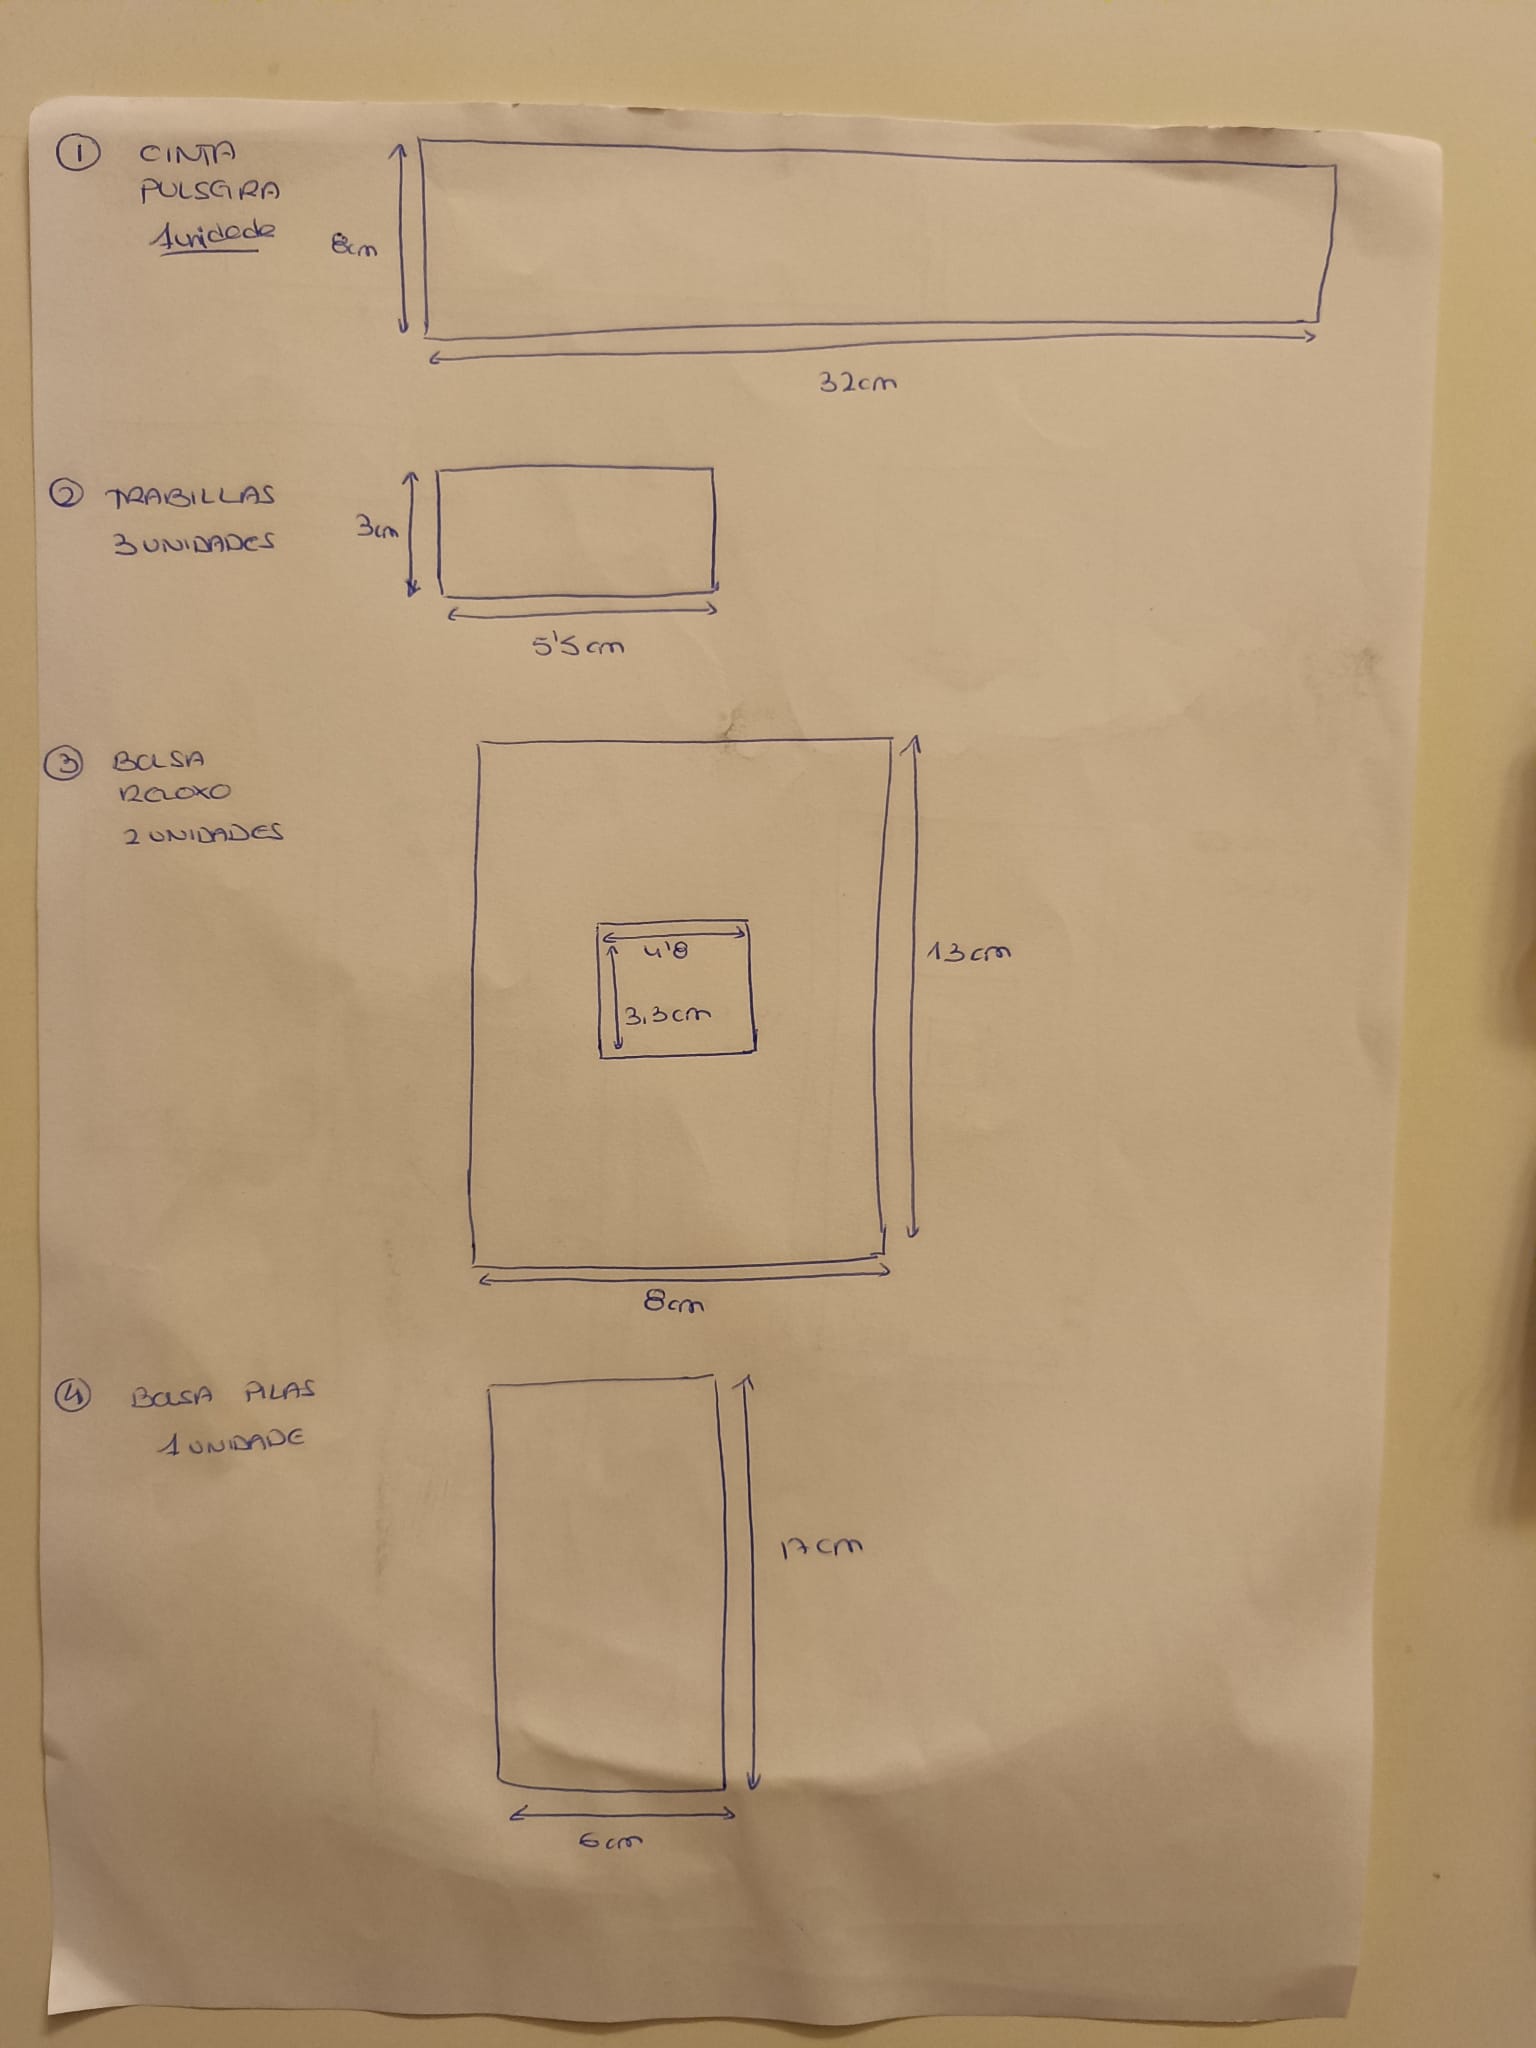 1 CINTA
PULSEIRA
1 unidade
8cm
32cm
2 TRABILLAS
3 UNIDADES
3cm
5'5cm
3 BOLSA
RELOXO
2 UNIDADES
4'8
3,3cm
13cm
8cm
4 BOLSA PILAS
1 UNIDADE
17cm
6cm